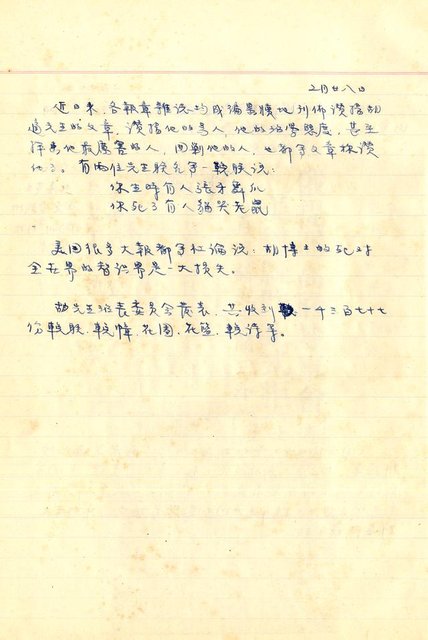 2月廿八日
近日来,各報章雜誌均成篇累牘地刊佈讚揚胡
適先生的文章,讚揚他的為人,他的治學態度,甚至
平素他最厲害的人,圍剿他的人,也都寫文章捧讚
他了。有兩位先生联名寫一輓联説:
你生時有人張牙舞爪
你死了有人貓哭老鼠
美国很多大報都寫社論説:胡博士的死对
全世界的智识界是一大損失。
胡先生治丧委員会發表,共收到一千三百七十七
份輓联、輓幛、花圈、花籃、輓詩等。